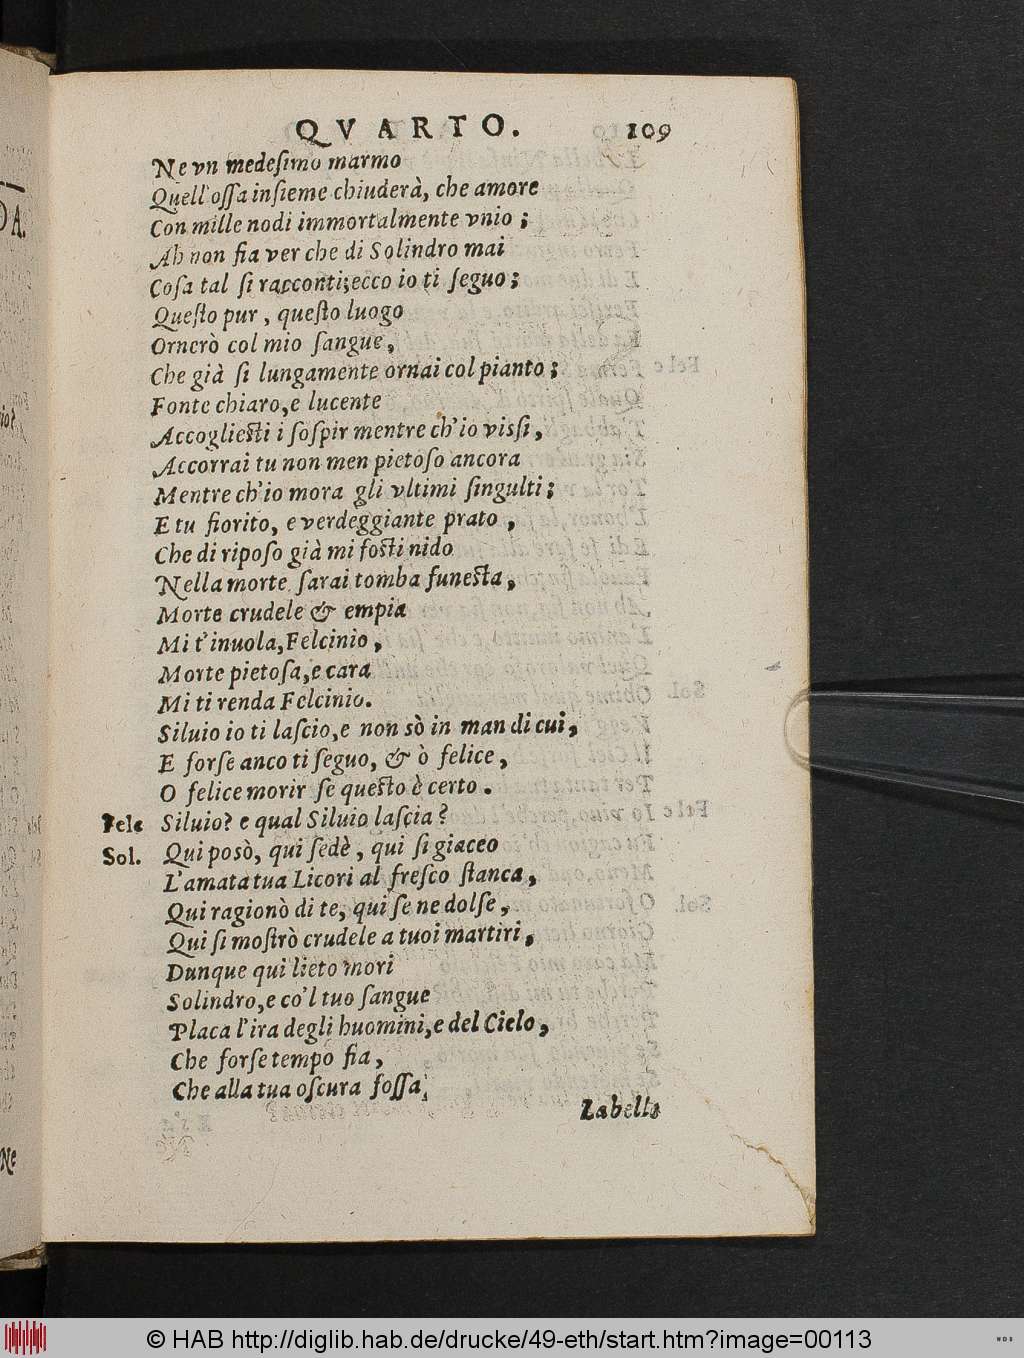 QVARTO. 109
Ne vn medeſimo marmo
Quell'oſſa inſieme chiuderà, che amore
Con mille nodi immortalmente vnio ;
Ah non fia ver che di Solindro mai
Coſa tal ſi racconti; ecco io ti ſeguo ;
Queſto pur , queſto luogo
Ornerò col mio ſangue ,
Che già ſi lungamente ornai col pianto ;
Fonte chiaro, e lucente
Accoglieſti i ſoſpir mentre ch'io viſſi ,
Accorrai tu non men pietoſo ancora
Mentre ch'io mora gli vltimi ſingulti ;
E tu fiorito, e verdeggiante prato ,
Che di ripoſo già mi foſti nido
Nella morte ſarai tomba funeſta ,
Morte crudele & empia
Mi t'inuola, Felcinio ,
Morte pietoſa, e cara
Mi ti renda Felcinio.
Siluio io ti laſcio, e non sò in man di cui ,
E forſe anco ti ſeguo, & ò felice ,
O felice morir ſe queſto è certo .
Felc Siluio? e qual Siluio laſcia?
Sol. Qui posò, qui ſedè , qui ſi giaceo
L'amata tua Licori al freſco ſtanca ,
Qui ragionò di te, qui ſe ne dolſe ,
Qui ſi moſtrò crudele a tuoi martiri ,
Dunque qui lieto mori
Solindro, e co'l tuo ſangue
Placa l'ira degli huomini, e del Cielo ,
Che forſe tempo fia ,
Che alla tua oſcura foſſa ,
La bella
DA.
Ne
© HAB http://diglib.hab.de/drucke/49-eth/start.htm?image=00113
WDB